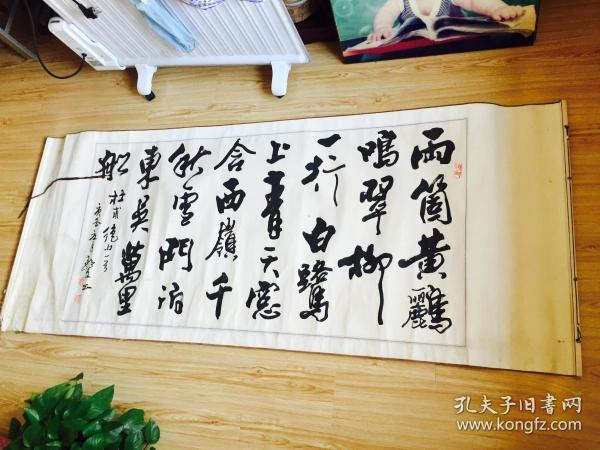 兩箇黃鸝
鳴翠柳
一行白鷺
上青天窓
含西嶺千
秋雪門泊
東吳萬里
船
杜甫絕句一首
孔夫子旧書网
www.kongfz.com